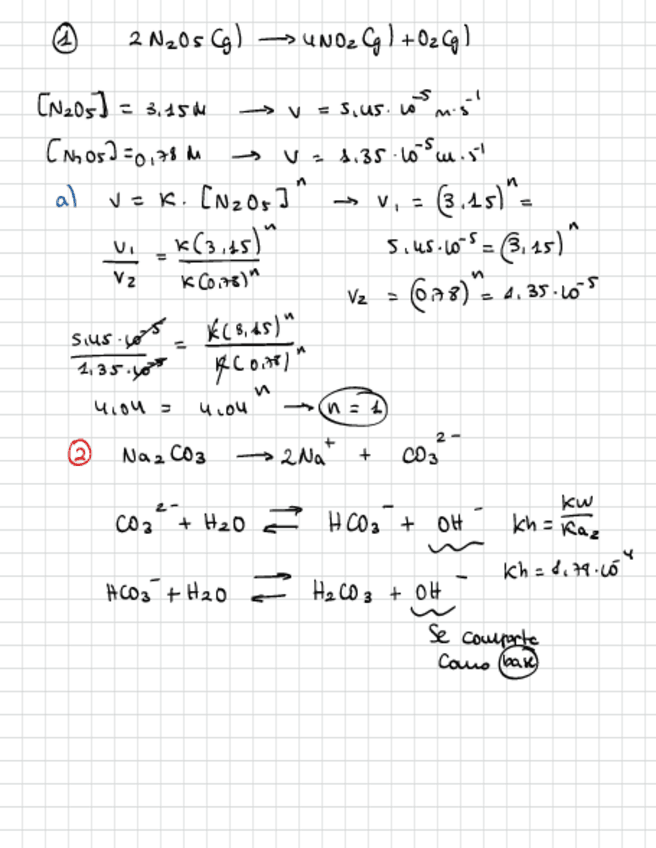 ① 2 N2O5 (g) → 4NO2 (g) + O2 (g)
[N2O5] = 3,15 M → v = 5,45 · 10^-5 M · s^-1
[N2O5] = 0,78 M → v = 1.35 · 10^-5 M · s^-1
a) v = K · [N2O5]^n → v1 = (3,15)^n =
v1/v2 = K(3,15)^n / K(0,78)^n
5,45·10^-5 = (3,15)^n
v2 = (0,78)^n = 1.35·10^-5
5,45·10^-5 / 1,35·10^-5 = K(3,15)^n / K(0,78)^n
4,04 = 4,04^n → n = 1
② Na2CO3 → 2Na^+ + CO3^2-
CO3^2- + H2O ⇌ HCO3^- + OH^- Kh = Kw/Ka2
HCO3^- + H2O ⇌ H2CO3 + OH^- Kh = 1,79·10^-4
Se comporta
como base